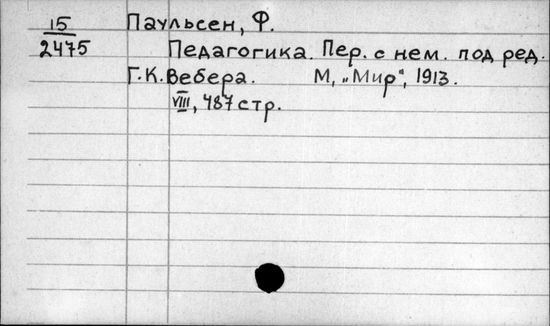 15 Паульсен, Ф.
2475 Педагогика. Пер. с нем. под ред.
Г. К. Вебера. М, „Мир", 1913.
VIII, 487 стр.